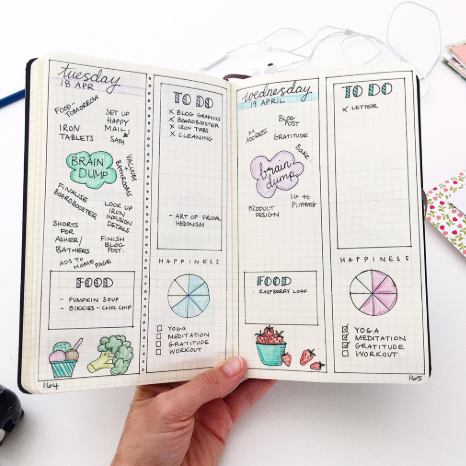 tuesday
18 APR
FOOD-
TOMORROW
SET UP
HAPPY
MAIL
IRON
TABLETS
SATH
BRAIN
DUMP
VACUUM
+
BATHROOMS
FINALISE
BOARDBOOSTER
LOOK UP
IRON
INFUSION
DETAILS
SHORTS
FOR
ASHER/
BATHERS
FINISH
BLOG
POST.
ADS TO
HOME PAGE
FOOD
- PUMPKIN SOUP
- BIKKIES - CHOC CHIP
164
TO DO
X BLOG GRAPHICS
X BOARDBOOSTER
X IRON TABS
X CLEANING
- ART OF FRUGAL
HEDONISM
HAPPINESS
YOGA
MEDITATION
GRATITUDE
WORKOUT
wednesday
19 APRIL
BLOG
POST
GRATITUDE
BAKE
brain
dump
PRODUCT
DESIGN
IG to
PINTEREST
FOOD
RASPBERRY LOAF
TO DO
X LETTER
HAPPINESS
YOGA
MEDITATION
GRATITUDE
WORKOUT
165